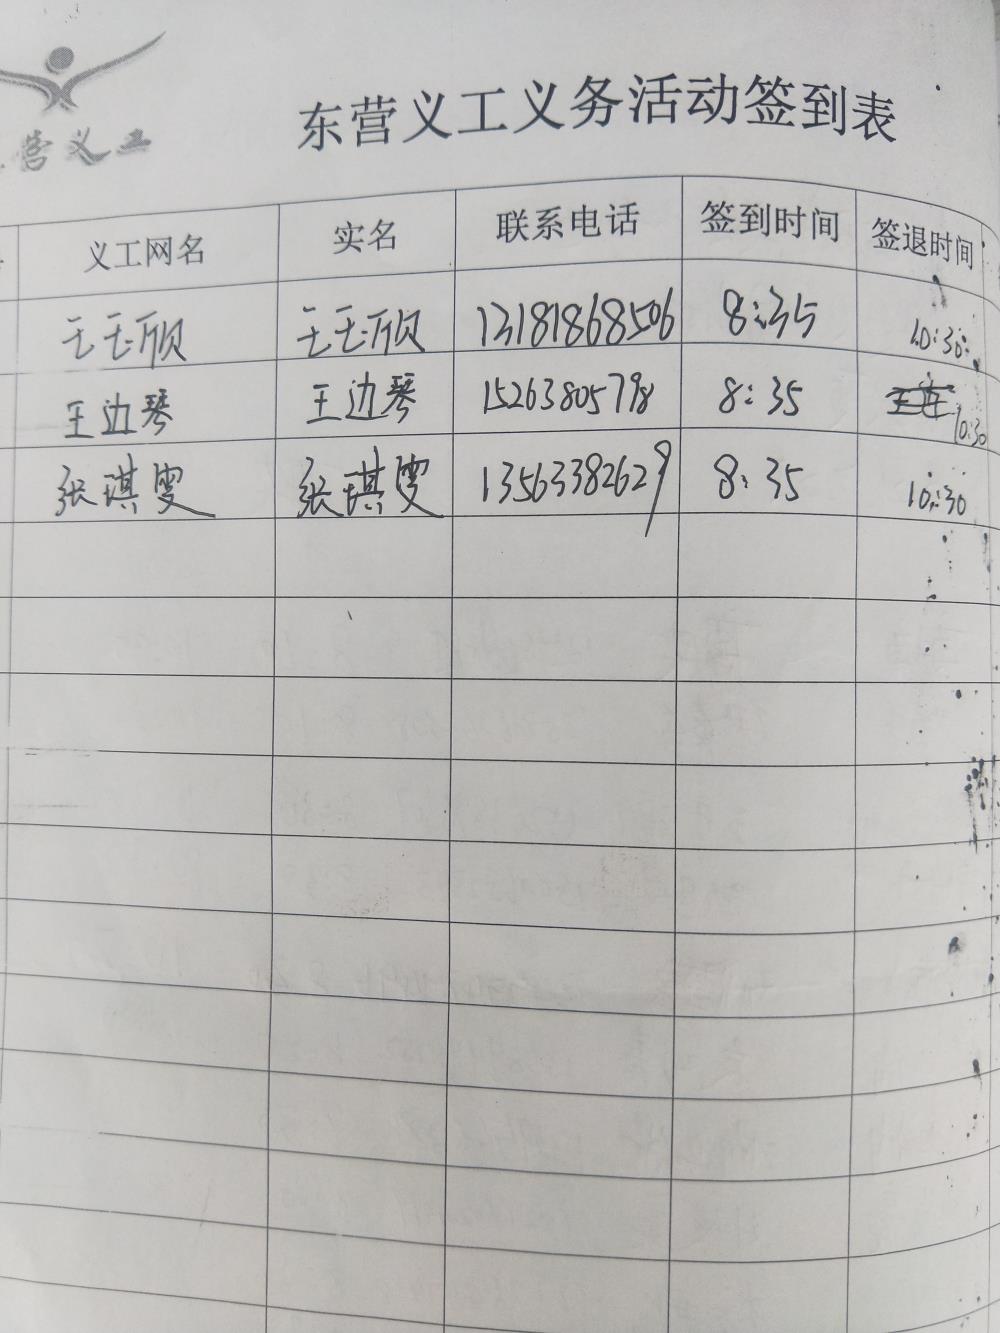 营义工
东营义工义务活动签到表
义工网名 实名 联系电话 签到时间 签退时间
王玉欣 王玉欣 13181868506 8:35 10:30
王边琴 王边琴 15263805798 8:35 10:30
张琪雯 张琪雯 13563382629 8:35 10:30